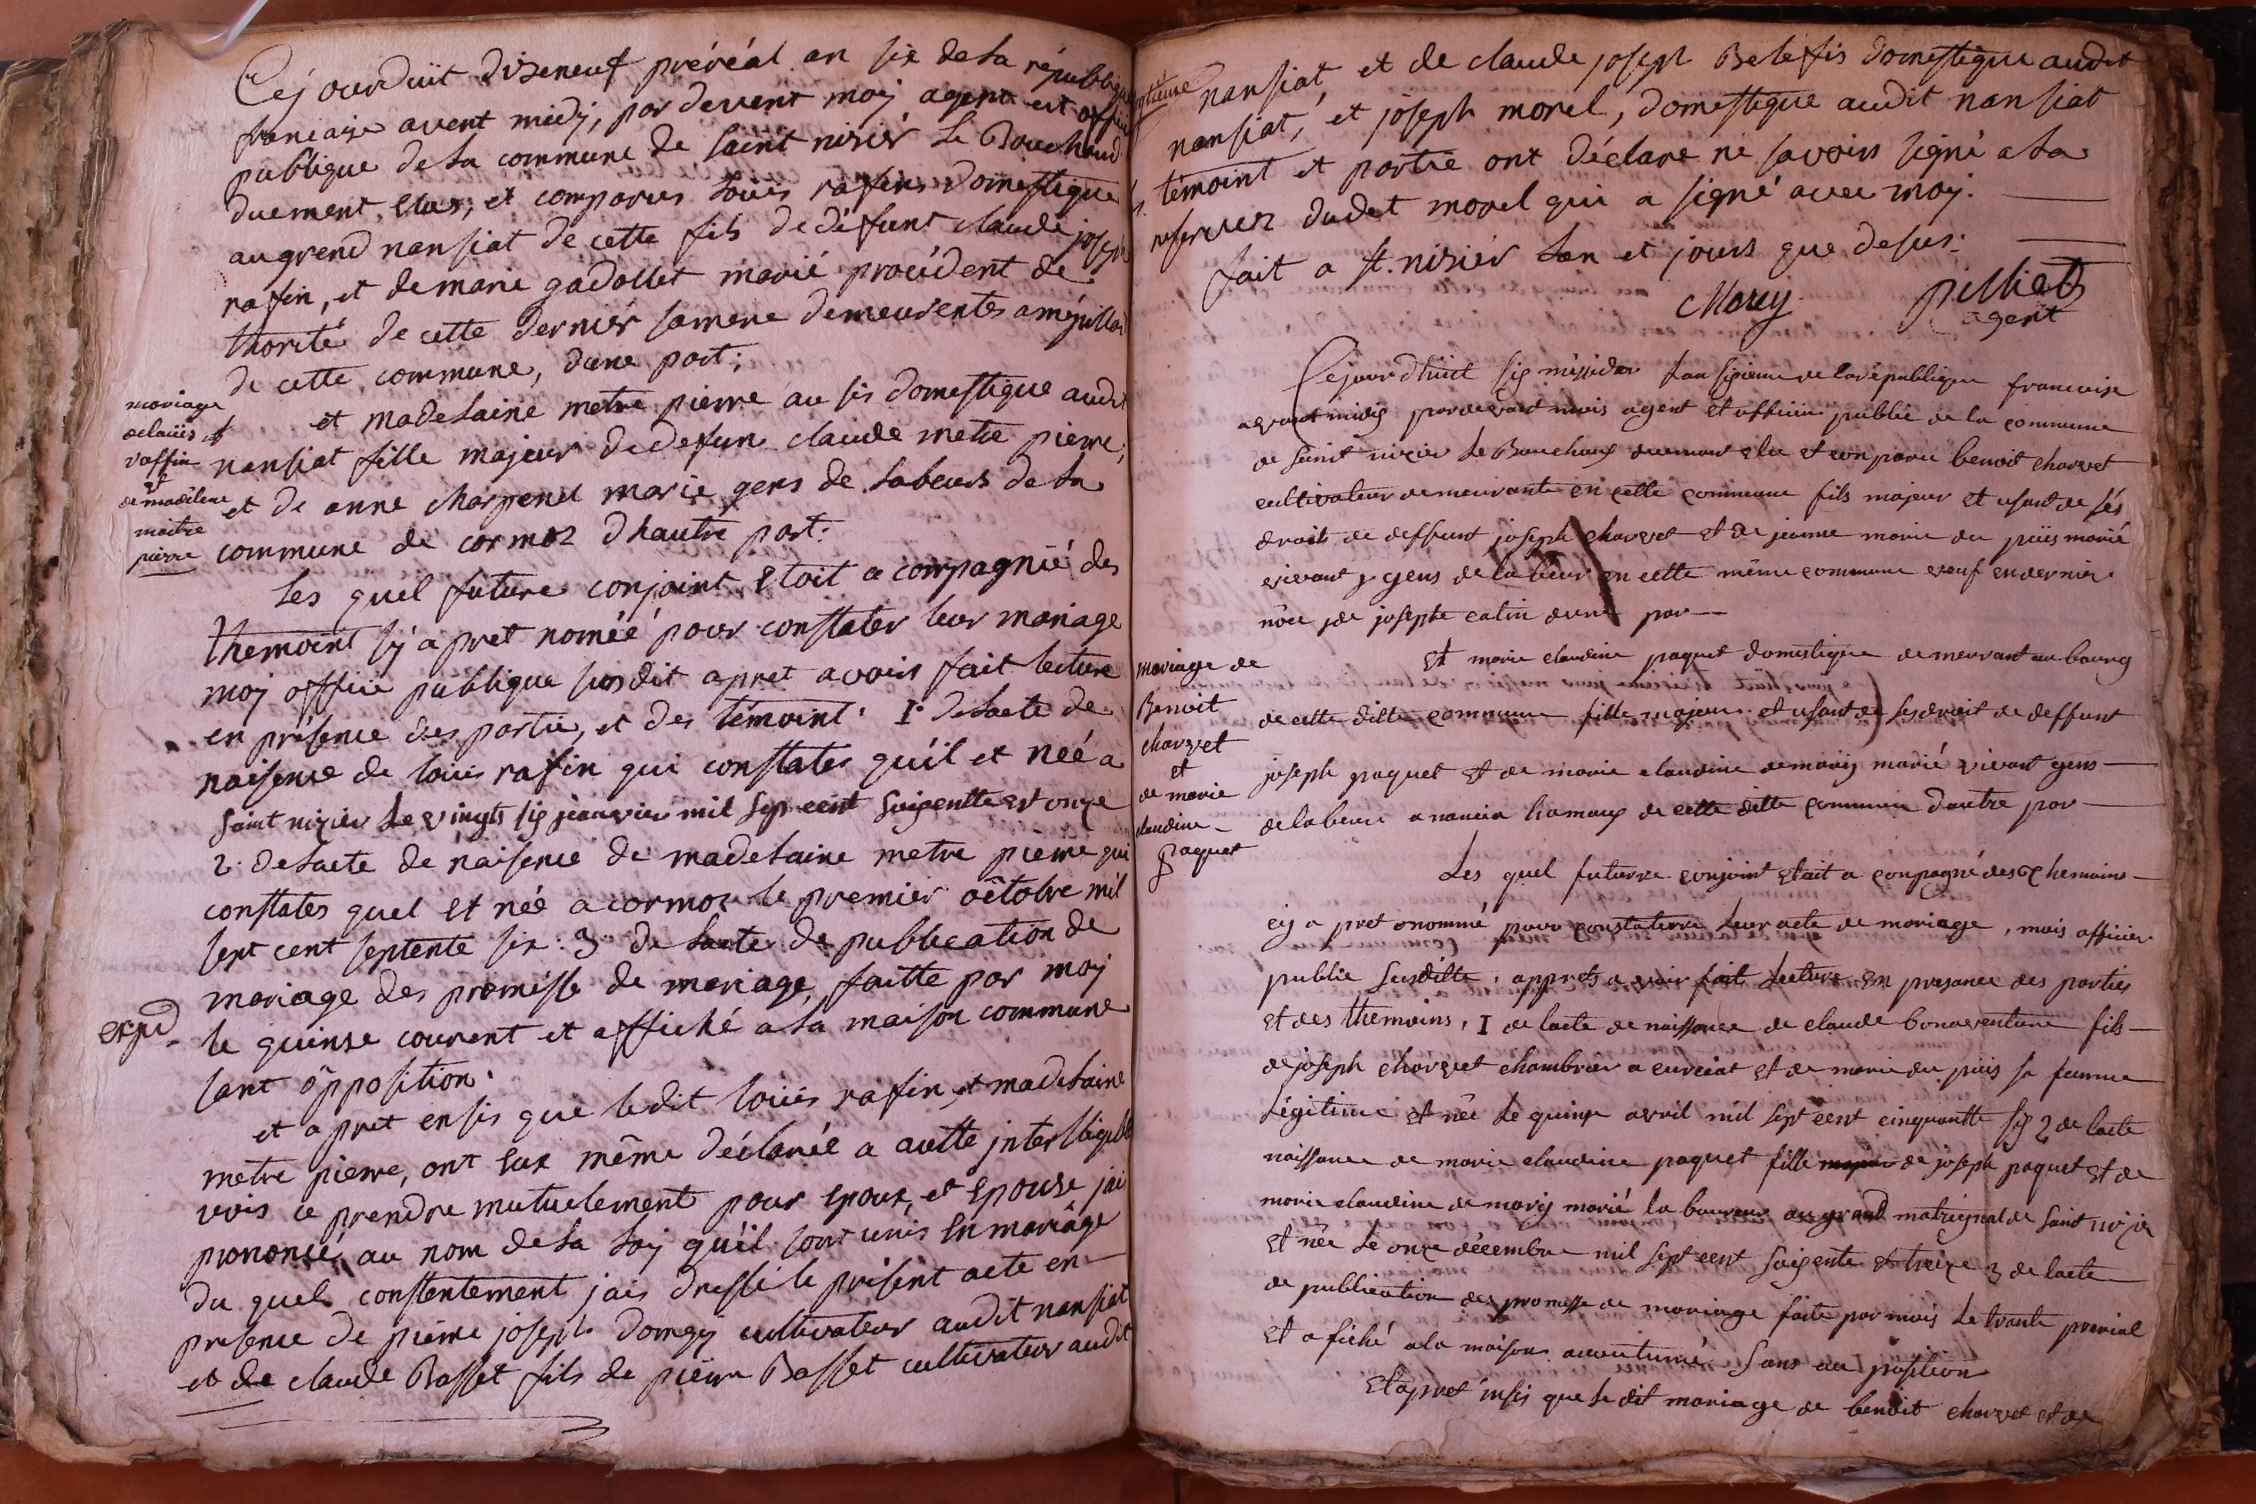 Cejourduit diseneuf préréal an six de la république
francaise avent midj, par devent moij agent et offici
publique de la commune de saint nisiér le Bouchoud
duement elus, et comparus louis rafin domestique
au grend nansiat de cette fils de défunt claude joseph
rafin, et de marie gadollet marié procédent de
thorité de cette dernier sa mere demeurentes a
de cette commune, dune part;
mariage
de loüis
raffin
et
de madelene
maitre
pierre
et madelaine metre pierre au sis domestique audit
nansiat fille majeur de defun claude metre pierre;
et de anne charpenel marie gens de labeurs de la
commune de cormoz dhautre part:
Les quel future conjoint etoit acompagnié des
themoint sÿ apret noméé pour constater leur mariage
moj officié publique susdit apret avoirs fait lecture
en présence des partie, et des témoint. 1° de lacte de
naisense de loüis rafin qui constates quil et néé a
saint nizier le vingts six jeanvier mil sept cent soixentte et onze
2. de lacte de naisence de madelaine metre pierre qui
constates quel et néé a cormoz le premier octobre mil
sept cent septente six. 3 de lacte de publication de
mariage des promésse de mariage, faitte par moj
expd
le quinse courent et affiché a la maison commune
sant opposition.
et apret ensis que ledit loüis rafin, et madelaine
metre pierre, ont eux même déclaréé a autte jntelligible
vois ce prendre mutuelement pour epoux, et epouse jai
prononsé au nom de la loj quil sont unis en mariâge
du quel consentement jais dressé le présent acte en
presence de pierre joseph domgÿ cultivateur audit nansiat
et de claude Basset fils de pierre Basset cultivateur audit
nansiat, et de claude joseph Bele fis domestique audit
nansiat, et joseph morel, domestique audit nansiat
témoint et partie ont déclare ne savoirs signé a la
reserver dudit morel qui a signé avec moj.
fait a st. nisiér lan et jours que desus:
Morey
pilliat
agent
Cejourdhuit six méssidor lan sixieme de la république francaise
avant midij pardevant mois agent et officier public de la commune
de saint nizier le Bouchoux duemant elu et conparu benoit charvet
cultivateur demeurante en cette commune fils majeur et usant de sés
droits de deffunt joseph charvet et de jeanne marie du puis marié
vivant gens de labeur en cette même commune veuf en dernier
nôce de josephe catin dune par
mariage de
Benoit
charvet
et
de marie
claudine
paquet
et marie claudine paquet domestique demeurant au bourg
de cette ditte commune fille majeur et usant de ses droit de deffunt
joseph paquet et de marie claudine demarÿ marié vivant gens
de labeur a nancia hamaux de cette ditte commune dautre par
Les quel futurre conjoint etait a conpagné des themoins
cij apret nommé pour constaterre leur acte de mariage, mois officier
public susditte, apprets avoir fait lecture en presance des parties
et des themoins, 1 de lacte de naissance de claude bonaventure fils
de joseph charvet chambrier a curciat et de marie du puis sa femme
légitime et née le quinze avril mil sept cent cinquantte six 2 de lacte
naissance de marie claudine paquet fille de joseph paquet et de
marie claudine de marÿ marié laboureur au grand matrignal de saint nizié
et née le onze décembre mil sept cent soixente et treize 3 de lacte
de publication des promesse de mariage faite par mois le trante prerial
et afiché a la maison accoutumé sans au position
et apret insis que le dit mariage de benoit charvet et de